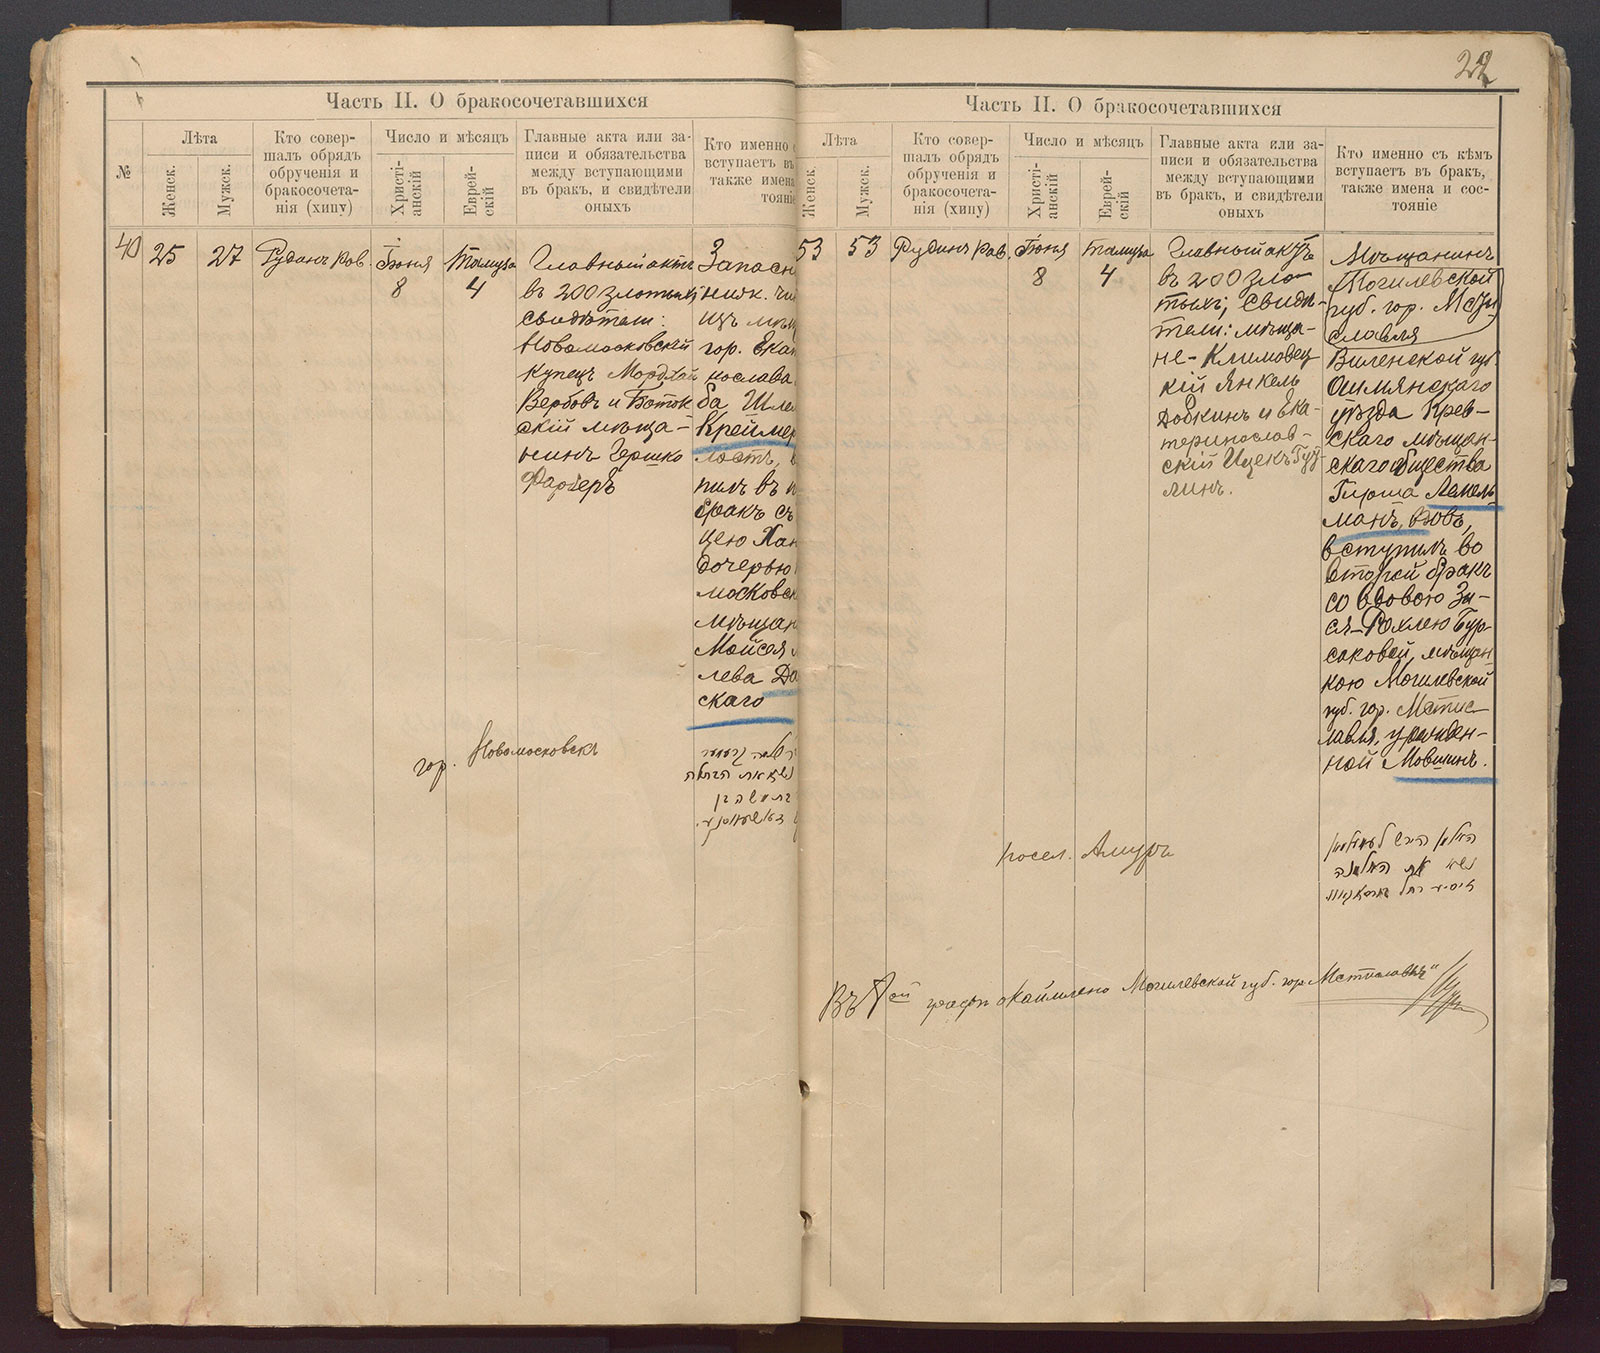 22
Часть II. О бракосочетавшихся
№
Лѣта
Женск.
Мужск.
Кто совер-
шалъ обрядъ
обрученія и
бракосочета-
нія (хипу)
Число и мѣсяцъ
Христі-
анскій
Еврей-
скій
Главные акта или за-
писи и обязательства
между вступающими
въ бракъ, и свидѣтели
оныхъ
Кто именно с
вступаетъ въ
также имена
тояніе
40
25
27
Руданъ Рав.
Іюня
8
Тамуза
4
Главный актъ
въ 200 злотыхъ
свидѣтели:
Новомосковскій
купецъ Мордхай
Вербовъ и
скій мѣща-
нинъ Гершко
Фарберъ
Запасн
нижн. чи
изъ мѣщ
гор. Екат
нослава
ба Шле
Креймер
лостъ, в
пилъ въ п
бракъ съ
цею Хан
дочерью
московск
мѣщан
Мойсея
лева До
скаго
гор. Новомосковскъ
Часть II. О бракосочетавшихся
Лѣта
Женск.
Мужск.
Кто совер-
шалъ обрядъ
обрученія и
бракосочета-
нія (хипу)
Число и мѣсяцъ
Христі-
анскій
Еврей-
скій
Главные акта или за-
писи и обязательства
между вступающими
въ бракъ, и свидѣтели
оныхъ
Кто именно съ кѣмъ
вступаетъ въ бракъ,
также имена и сос-
тояніе
53
53
Рудинъ Рав.
Іюня
8
Тамуза
4
Главный актъ
въ 200 зло-
тыхъ; свидѣ-
тели: мѣща-
не - Климовец
кій Янкель
Добкинъ и Ека-
теринослав-
скій Ицекъ
Мѣщанинъ
Могилевской
губ. гор. Мсти
славля
Виленской губ.
Ошмянскаго
уѣзда Крев-
скаго мѣщан-
скаго общества
Гирша Лемель
манъ, вдовъ,
вступилъ во
второй бракъ
со вдовою Зи-
ся-Рохлею Бур-
саковой, мѣщан-
кою Могилевской
губ. гор. Мстис-
лавля, урожден-
ной Мовшинъ.
посел. Амуръ
האלמן הירש לעמעלמאן
נשא את האלמנה
זיסיע רחל
Въ графѣ Могилевской губ. гор. Мстиславль"